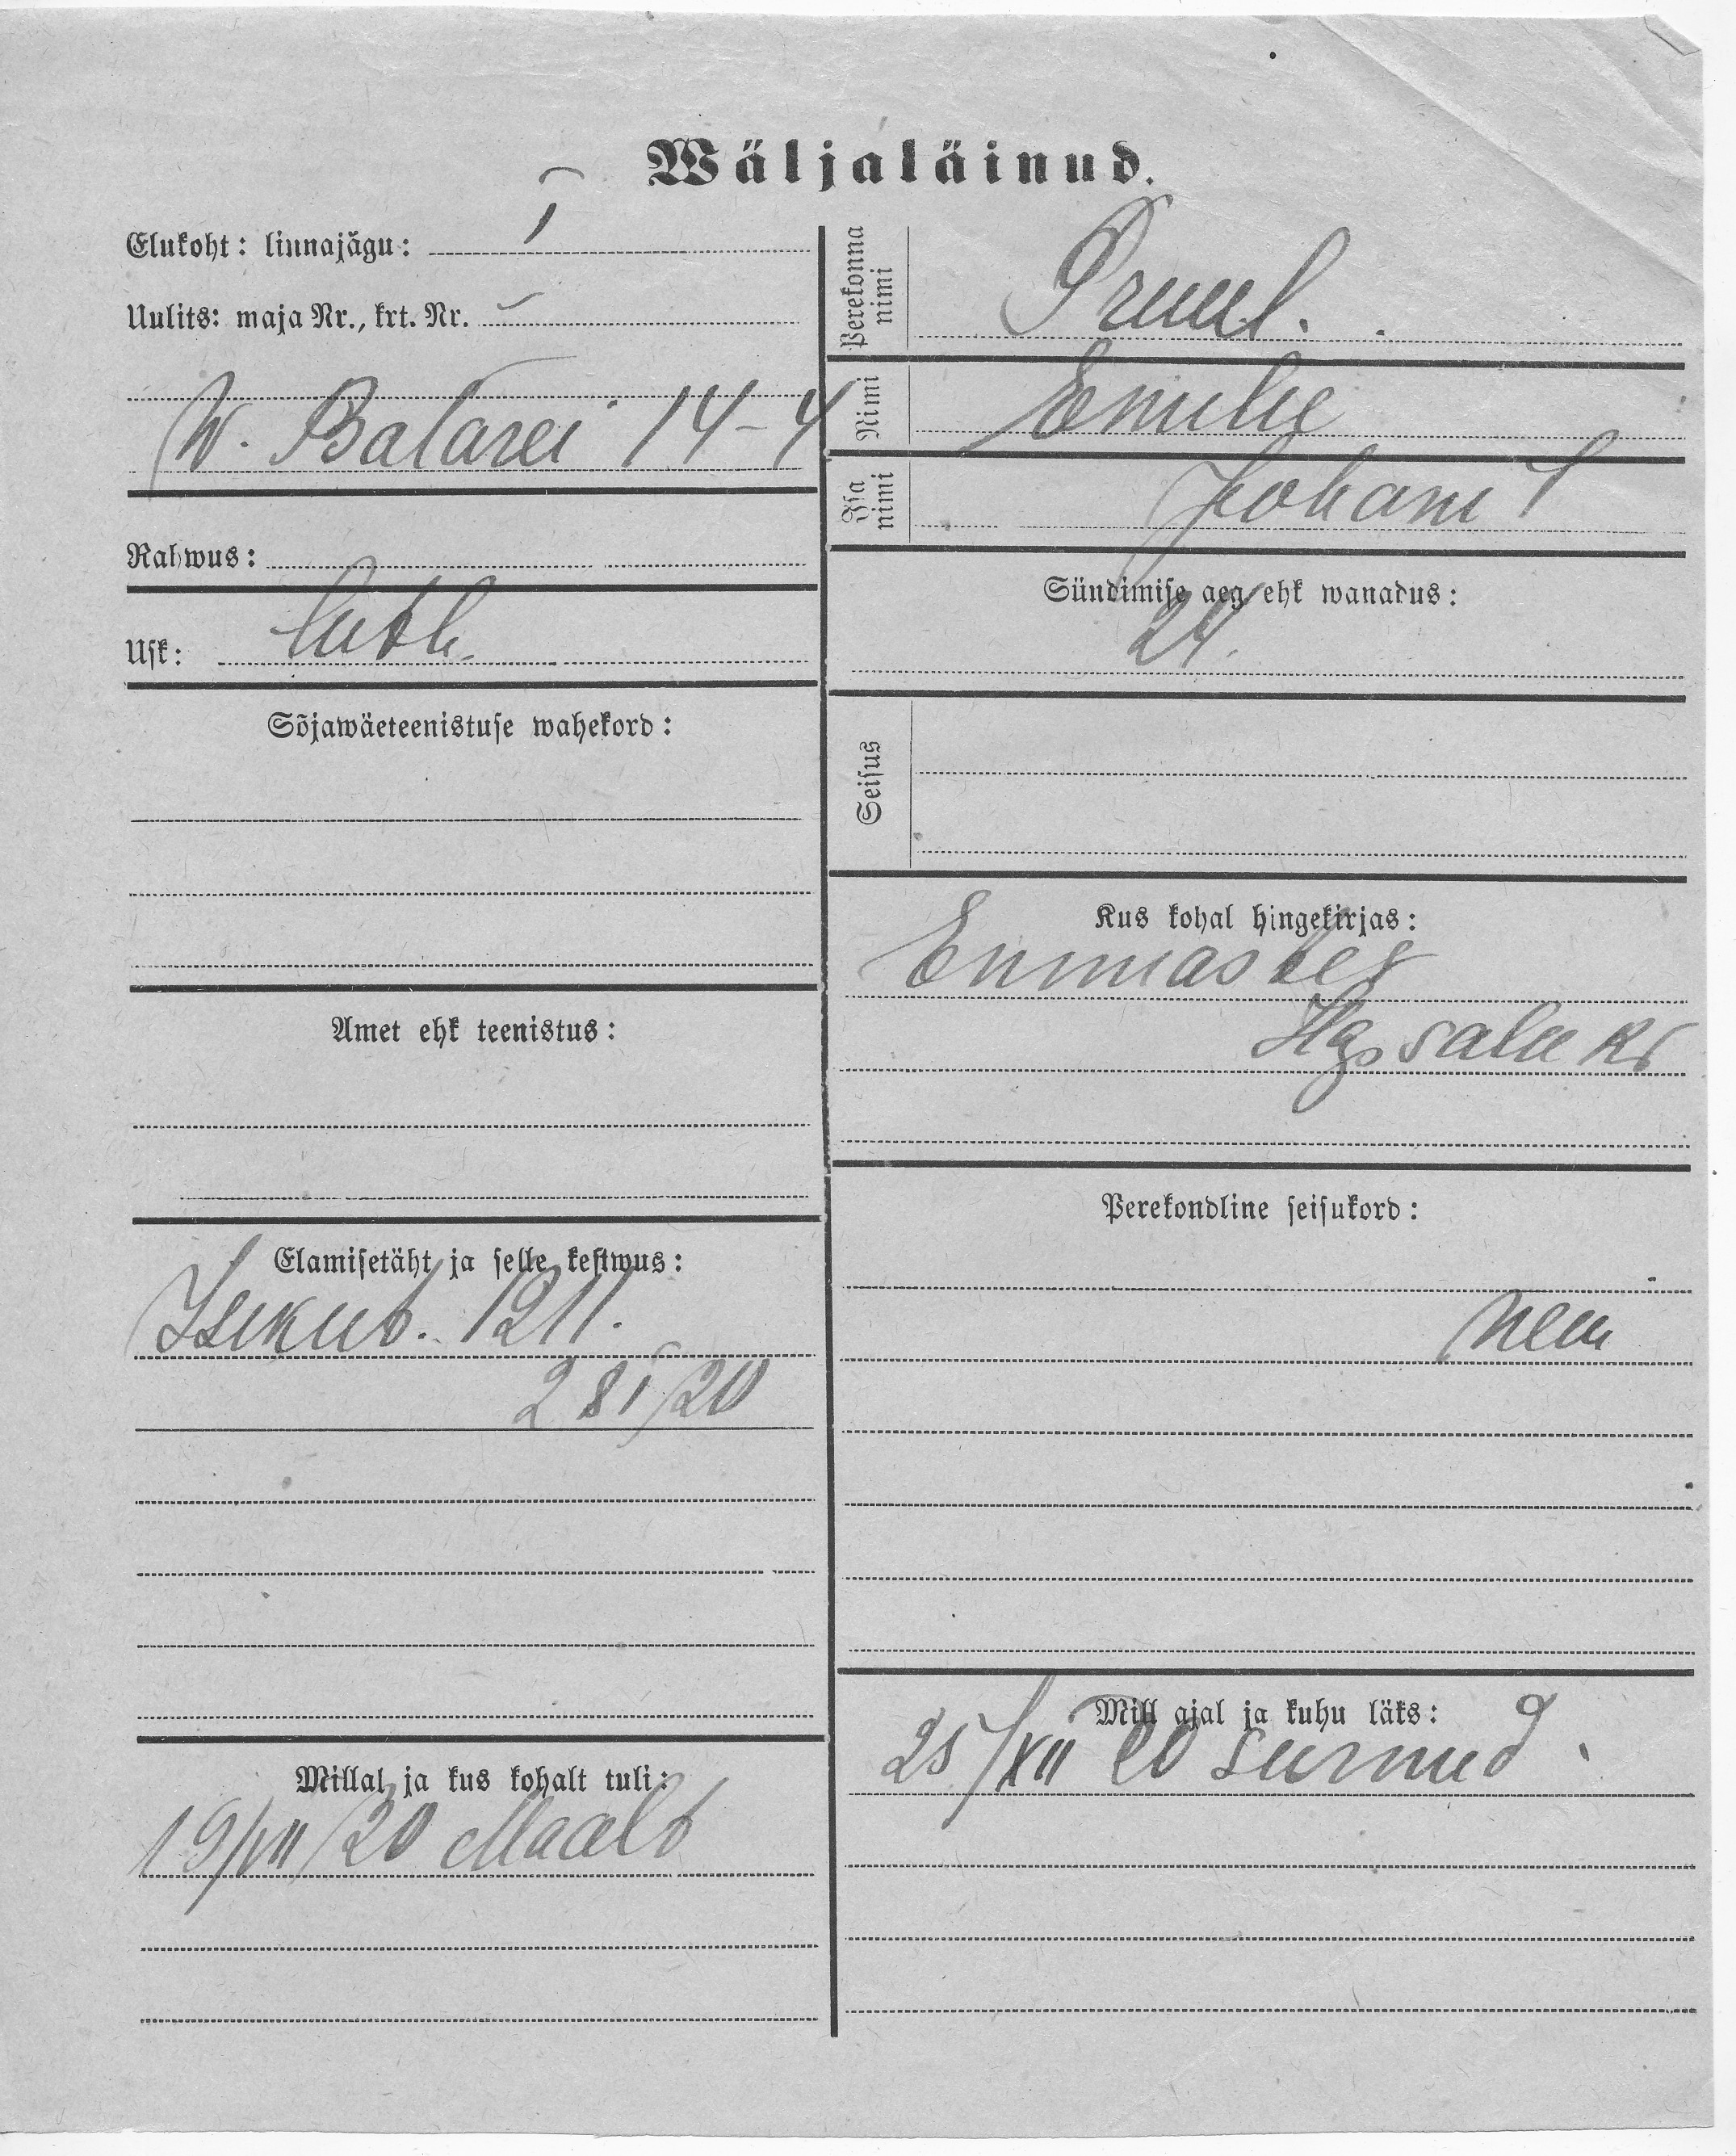 Wäljaläinud.
Elukoht: linnajägu: I
Uulits: maja Nr., krt. Nr.
W. Batarei 14-4
Rahwus:
Usk: luth.
Sõjawäeteenistuse wahekord:
Amet ehk teenistus:
Elamisetäht ja selle kestwus:
Isikut. 1211.
Millal ja kus kohalt tuli:
19/VII/20 Maalt
Perekonna nimi Pruul.
Nimi Emilie
Isa nimi Johani t
Sündimise aeg ehk wanadus:
24.
Seisus
Kus kohal hingekirjas:
Enmastes
salu kr
Perekondline seisukord:
neiu
Mill ajal ja kuhu läks:
25/XII 20 surnud.